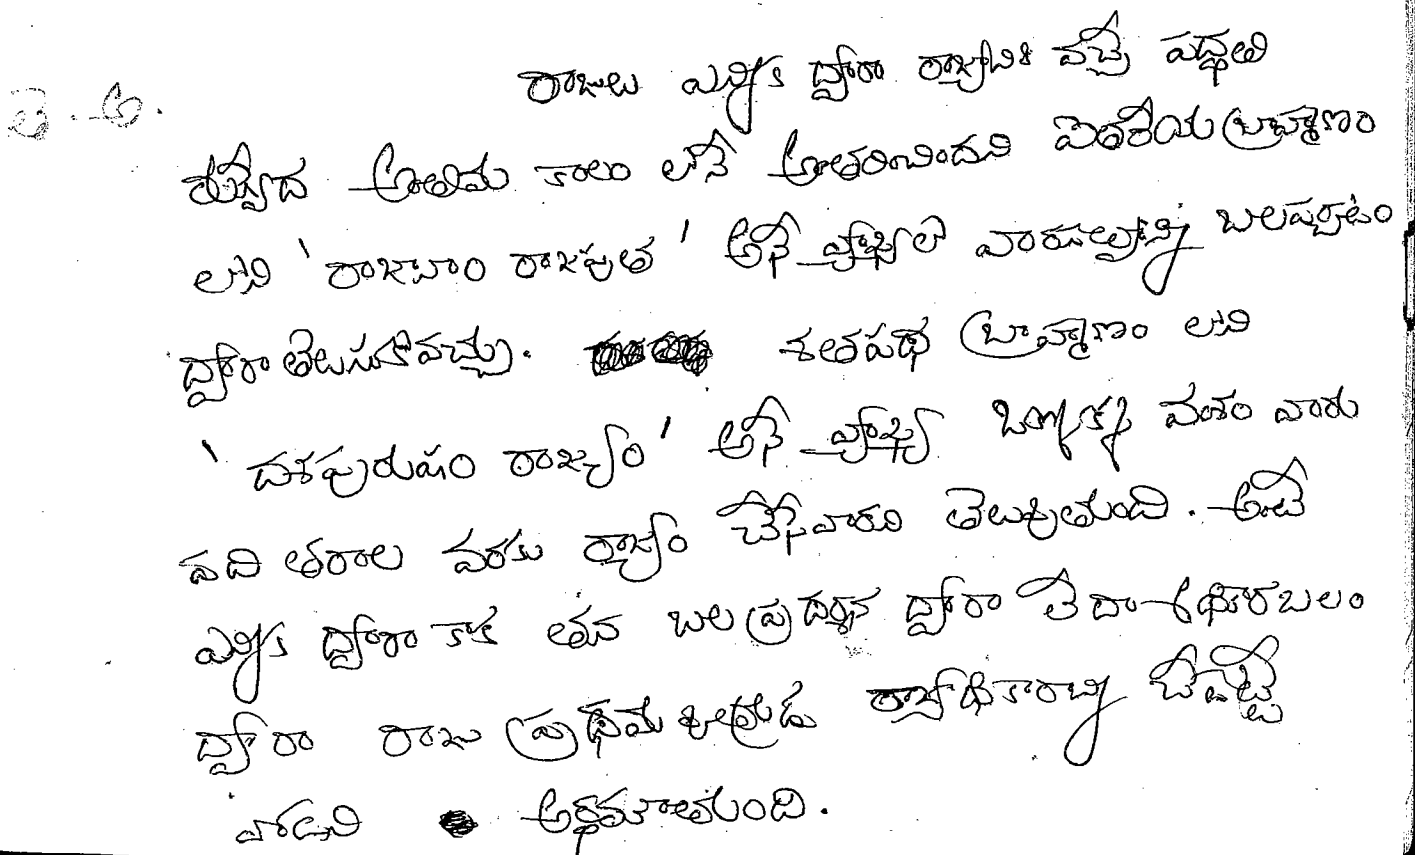 రాజులు ఎన్నిక ద్వారా రాజ్యానికి వచ్చే పద్ధతి
ఋగ్వేద అంతిమ కాలం లోనే అంతరించిందని ఐతరేయ బ్రాహ్మణం
లోని 'రాజానాం రాజపుత' అనే వ్యాఖ్యలో వారసత్వాన్ని బలపర్చటం
ద్వారా తెలుసుకోవచ్చు. శతపథ బ్రాహ్మణం లోని
'దశపురుషం రాజ్యం' అనే వ్యాఖ్య ఒక్కొక్క వంశం వారు
పది తరాల వరకు రాజ్యం చేసేవారని తెలుస్తుంది. అంటే
ఎన్నిక ద్వారా కాక తన బల ప్రదర్శన ద్వారా లేదా శరీర బలం
ద్వారా రాజు ప్రథమ క్షత్రియుడు రాజ్యాధికారాన్ని చేపట్టే
వాడని అర్థమౌతుంది.